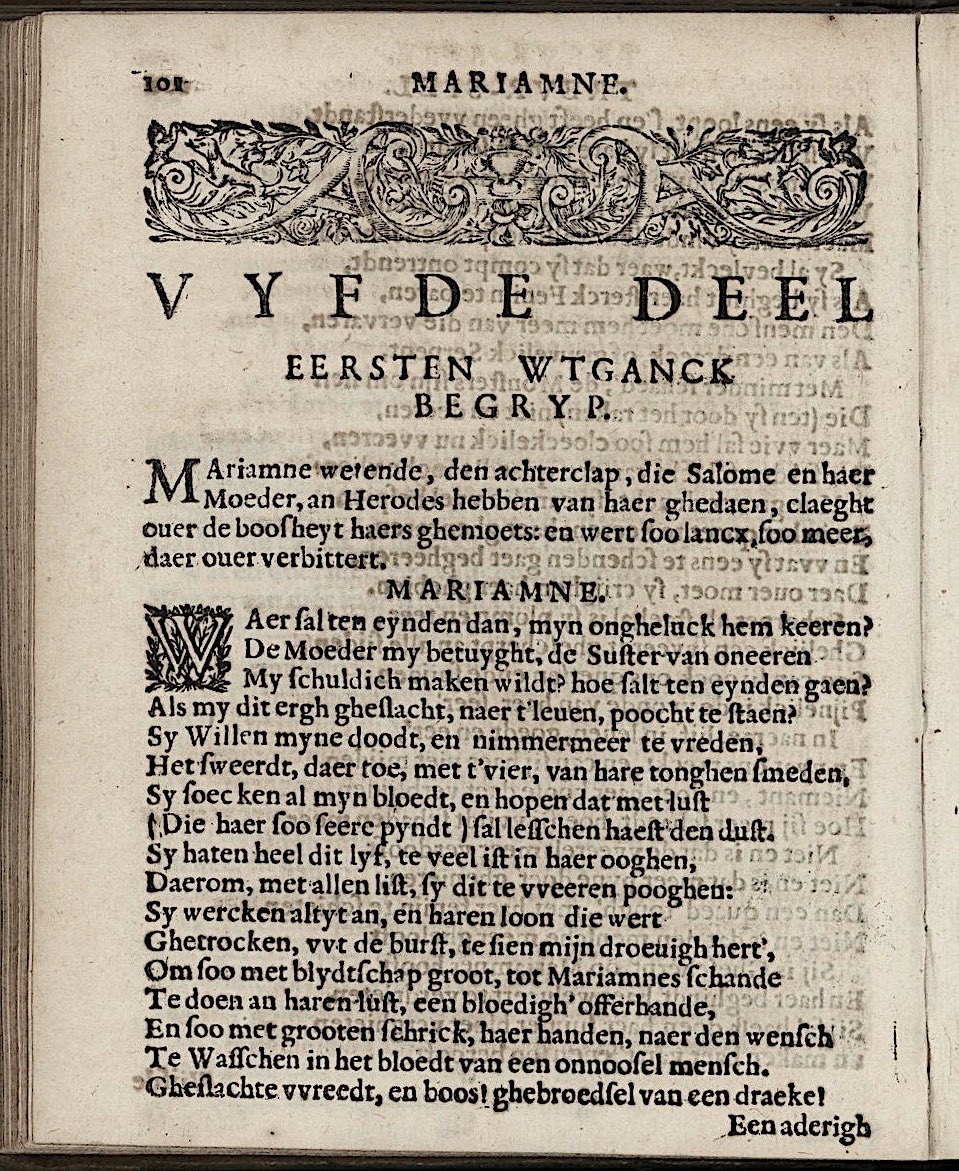 MARIAMNE.
VYFDE DEEL
EERSTEN WTGANCK
BEGRYP.
MAriamne wetende, den achterclap, die Salome en haer
Moeder, an Herodes hebben van haer ghedaen, claeght
ouer de booſheyt haers ghemoets: en wert ſoo lancx, ſoo meer,
daer ouer verbittert.
MARIAMNE.
WAer ſal ten eynden dan, myn ongheluck hem keeren?
De Moeder my betuyght, de Suſter van oneeren
My ſchuldich maken wildt? hoe ſalt ten eynden gaen?
Als my dit ergh gheſlacht, naer t'leuen, poocht te ſtaen?
Sy Willen myne doodt, en nimmermeer te vreden,
Het ſweerdt, daer toe, met t'vier, van hare tonghen ſmeden,
Sy ſoec ken al myn bloedt, en hopen dat met luſt
(Die haer ſoo ſeere pyndt) ſal leſſchen haeſt den duſt.
Sy haten heel dit lyf, te veel iſt in haer ooghen,
Daerom, met allen liſt, ſy dit te vveeren pooghen:
Sy wercken altyt an, en haren loon die wert
Ghetrocken, vvt de burſt, te ſien mijn droeuigh hert',
Om ſoo met blydtſchap groot, tot Mariamnes ſchande
Te doen an haren luſt, een bloedigh' offerhande,
En ſoo met grooten ſchrick, haer handen, naer den wenſch
Te Waſſchen in het bloedt van een onnooſel menſch.
Gheſlachte vvreedt, en boos! ghebroedſel van een draeke!
Een aderigh